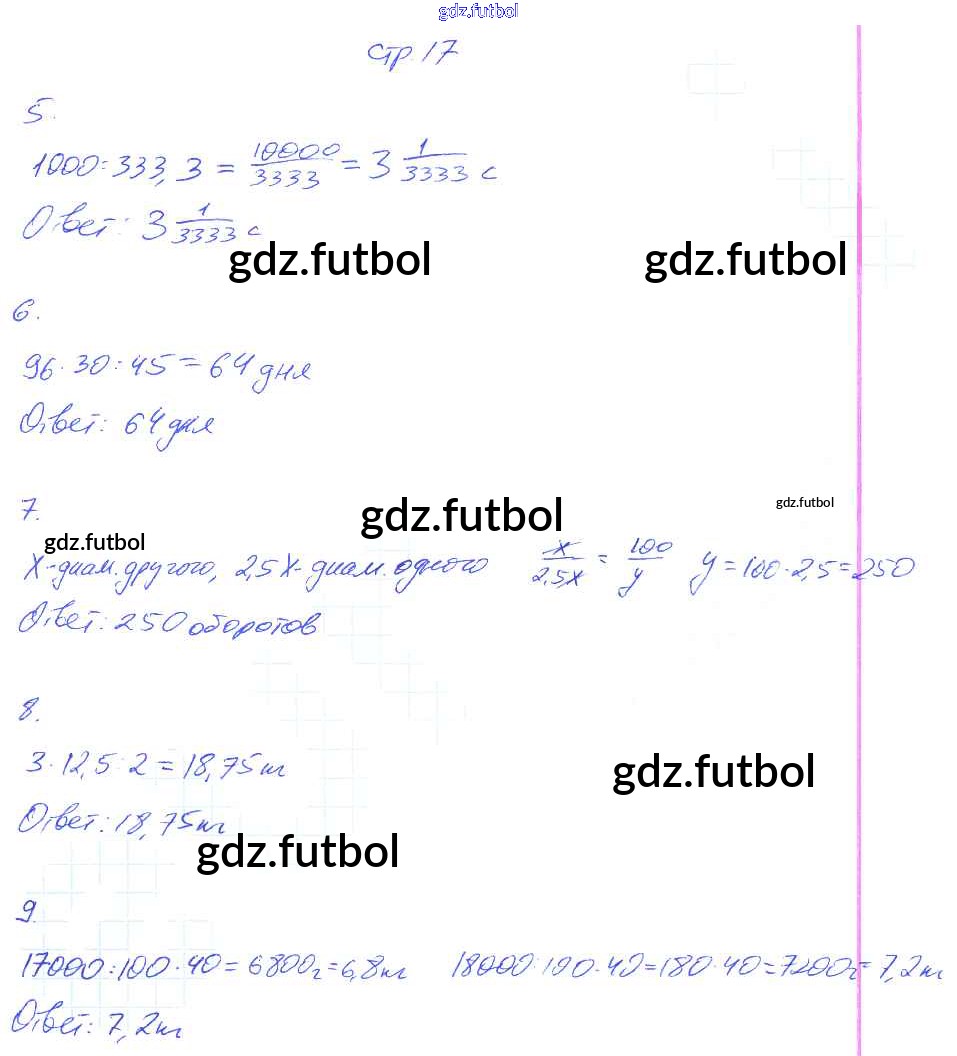 gdz.futbol
стр. 17
5.
1000 : 333,3 = 10000/3333 = 3 1/3333 с
Ответ: 3 1/3333 с
gdz.futbol gdz.futbol
6.
96 · 30 : 45 = 64 дня
Ответ: 64 дня
7.
gdz.futbol gdz.futbol
gdz.futbol
X - диам. другого, 2,5X - диам. одного x/2,5x = 100/y y = 100 · 2,5 = 250
Ответ: 250 оборотов
8.
3 · 12,5 : 2 = 18,75 м
gdz.futbol
Ответ: 18,75 м
gdz.futbol
9.
17000 : 100 · 40 = 6800 г = 6,8 кг 18000 : 100 · 40 = 180 · 40 = 7200 г = 7,2 кг
Ответ: 7,2 кг